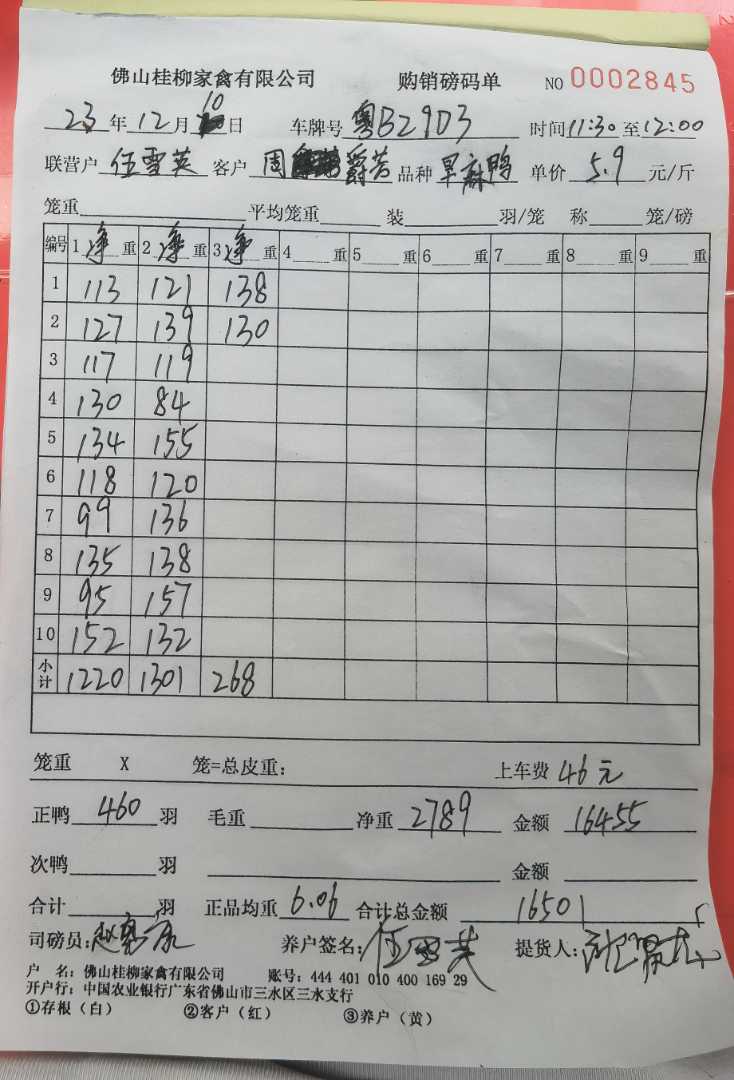 佛山桂柳家禽有限公司 购销磅码单 NO 0002845
23年12月10日 车牌号 粤B29D3 时间11:30至12:00
联营户 伍雪英 客户 周爵芳 品种 早麻鸭 单价 5.9 元/斤
笼重 平均笼重 装 羽/笼 称 笼/磅
编号 1 净 重 2 净 重 3 净 重 4 重 5 重 6 重 7 重 8 重 9 重
1 113 121 138
2 127 139 130
3 117 119
4 130 84
5 134 155
6 118 120
7 99 136
8 135 138
9 95 157
10 152 132
小计 1220 1301 268
笼重 X 笼=总皮重: 上车费 46元
正鸭 460 羽 毛重 净重 2789 金额 16455
次鸭 羽 金额
合计 羽 正品均重 6.06 合计总金额 16501
司磅员: 养户签名: 伍雪英 提货人:
户 名: 佛山桂柳家禽有限公司 账号: 444 401 010 400 169 29
开户行: 中国农业银行广东省佛山市三水区三水支行
①存根(白) ②客户(红) ③养户(黄)